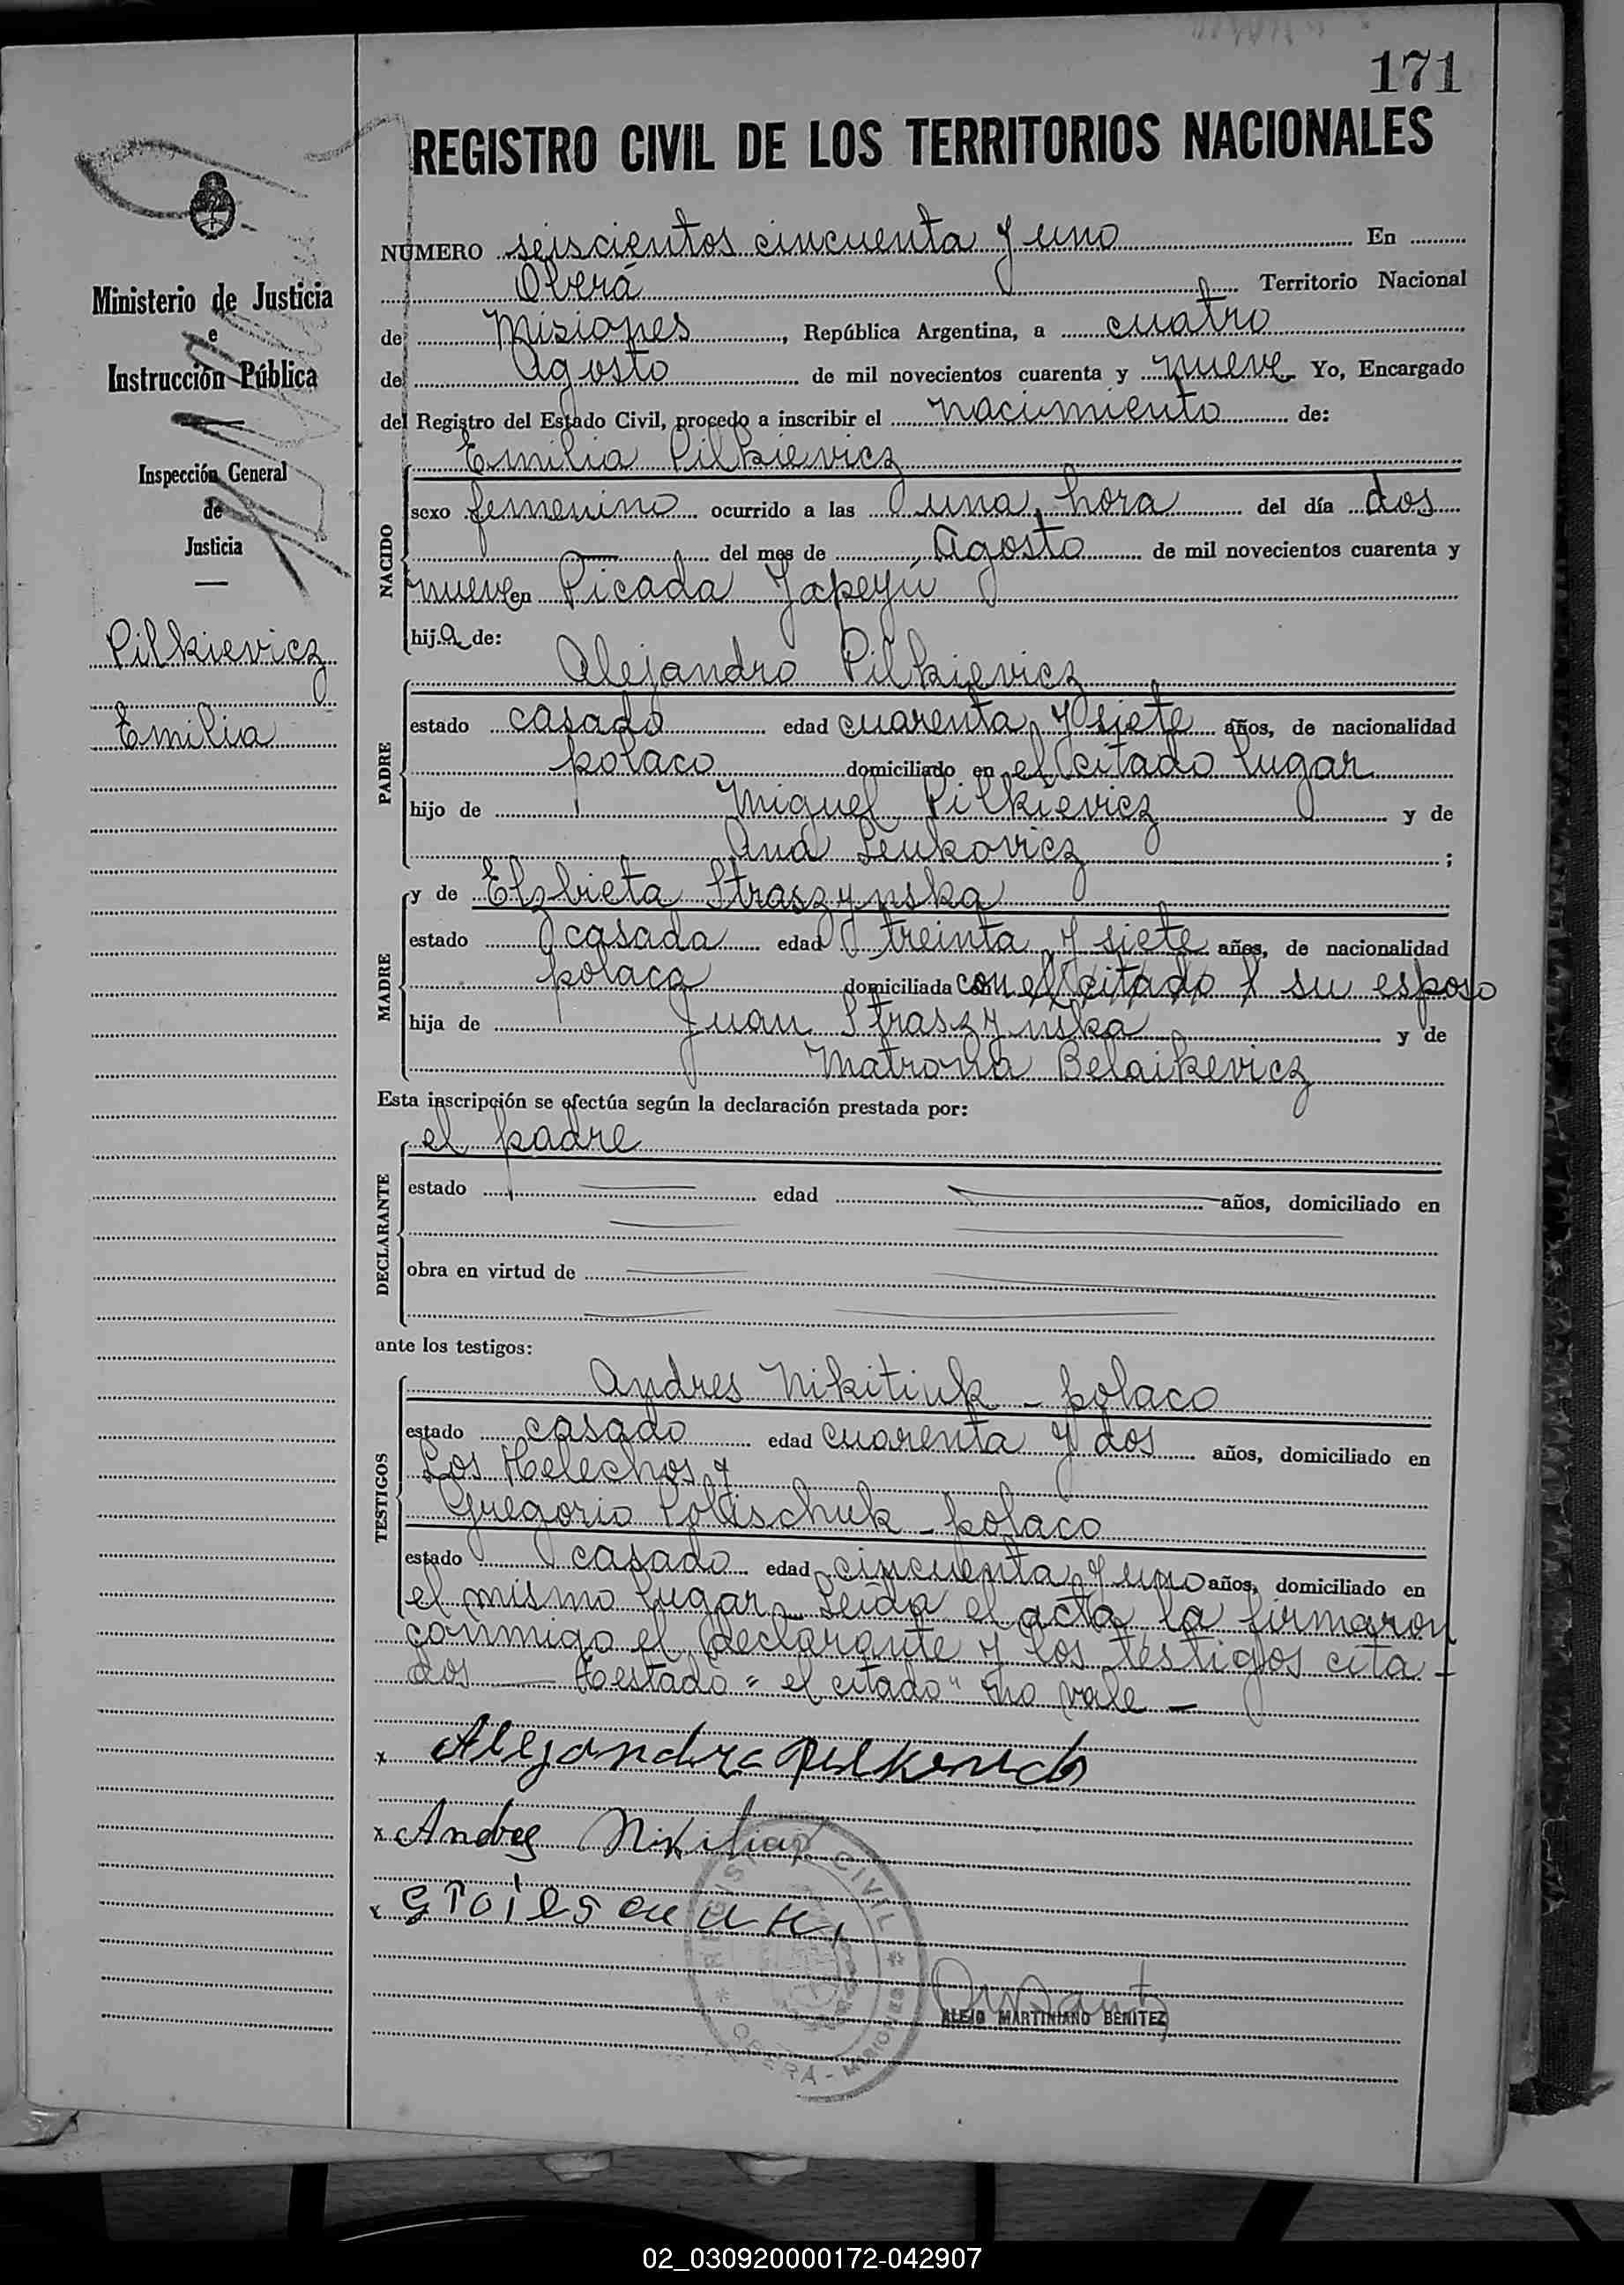 171
REGISTRO CIVIL DE LOS TERRITORIOS NACIONALES
Ministerio de Justicia
e
Instrucción Pública
Inspección General
de
Justicia
Pilkievicz
Emilia
NUMERO seiscientos cincuenta y uno En
Oberá Territorio Nacional
de Misiones, República Argentina, a cuatro
de Agosto de mil novecientos cuarenta y nueve Yo, Encargado
del Registro del Estado Civil, procedo a inscribir el nacimiento de:
NACIDO
Emilia Pilkievicz
sexo femenino ocurrido a las una hora del día dos
del mes de Agosto de mil novecientos cuarenta y
nueve en Picada Yapeyú
hija de:
PADRE
Alejandro Pilkievicz
estado casado edad cuarenta y siete años, de nacionalidad
polaco domiciliado en el citado lugar
hijo de Miguel Pilkievicz y de
Ana Leukovicz ;
MADRE
y de Elzbieta Straszynska
estado casada edad treinta y siete años, de nacionalidad
polaca domiciliada con el citado su esposo
hija de Juan Straszynska y de
Matrona Belaikevicz
Esta inscripción se efectúa según la declaración prestada por:
DECLARANTE
el padre
estado edad años, domiciliado en
obra en virtud de
ante los testigos:
TESTIGOS
Andres Nikitiuk - polaco
estado casado edad cuarenta y dos años, domiciliado en
Los Helechos y
Gregorio Polischuk - polaco
estado casado edad cincuenta y uno años, domiciliado en
el mismo lugar - Leída el acta la firmaron
conmigo el declarante y los testigos cita-
dos — Testado "el citado" no vale -
x Alejandro
x Andres Nikitiuk
x
REGISTRO CIVIL
OBERÁ - MISIONES
ALEJO MARTINIANO BENITEZ
02_030920000172-042907